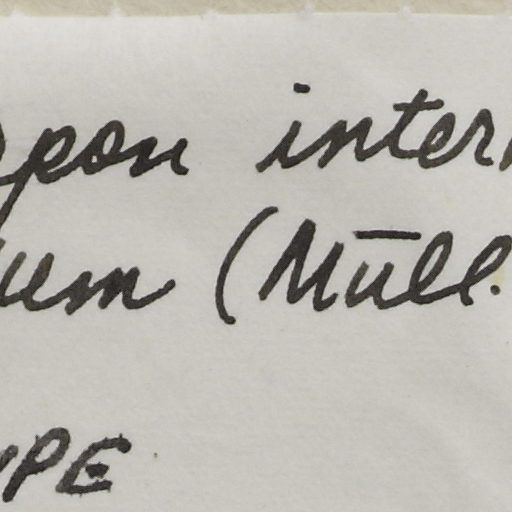 pon inter
um (Müll.
YPE